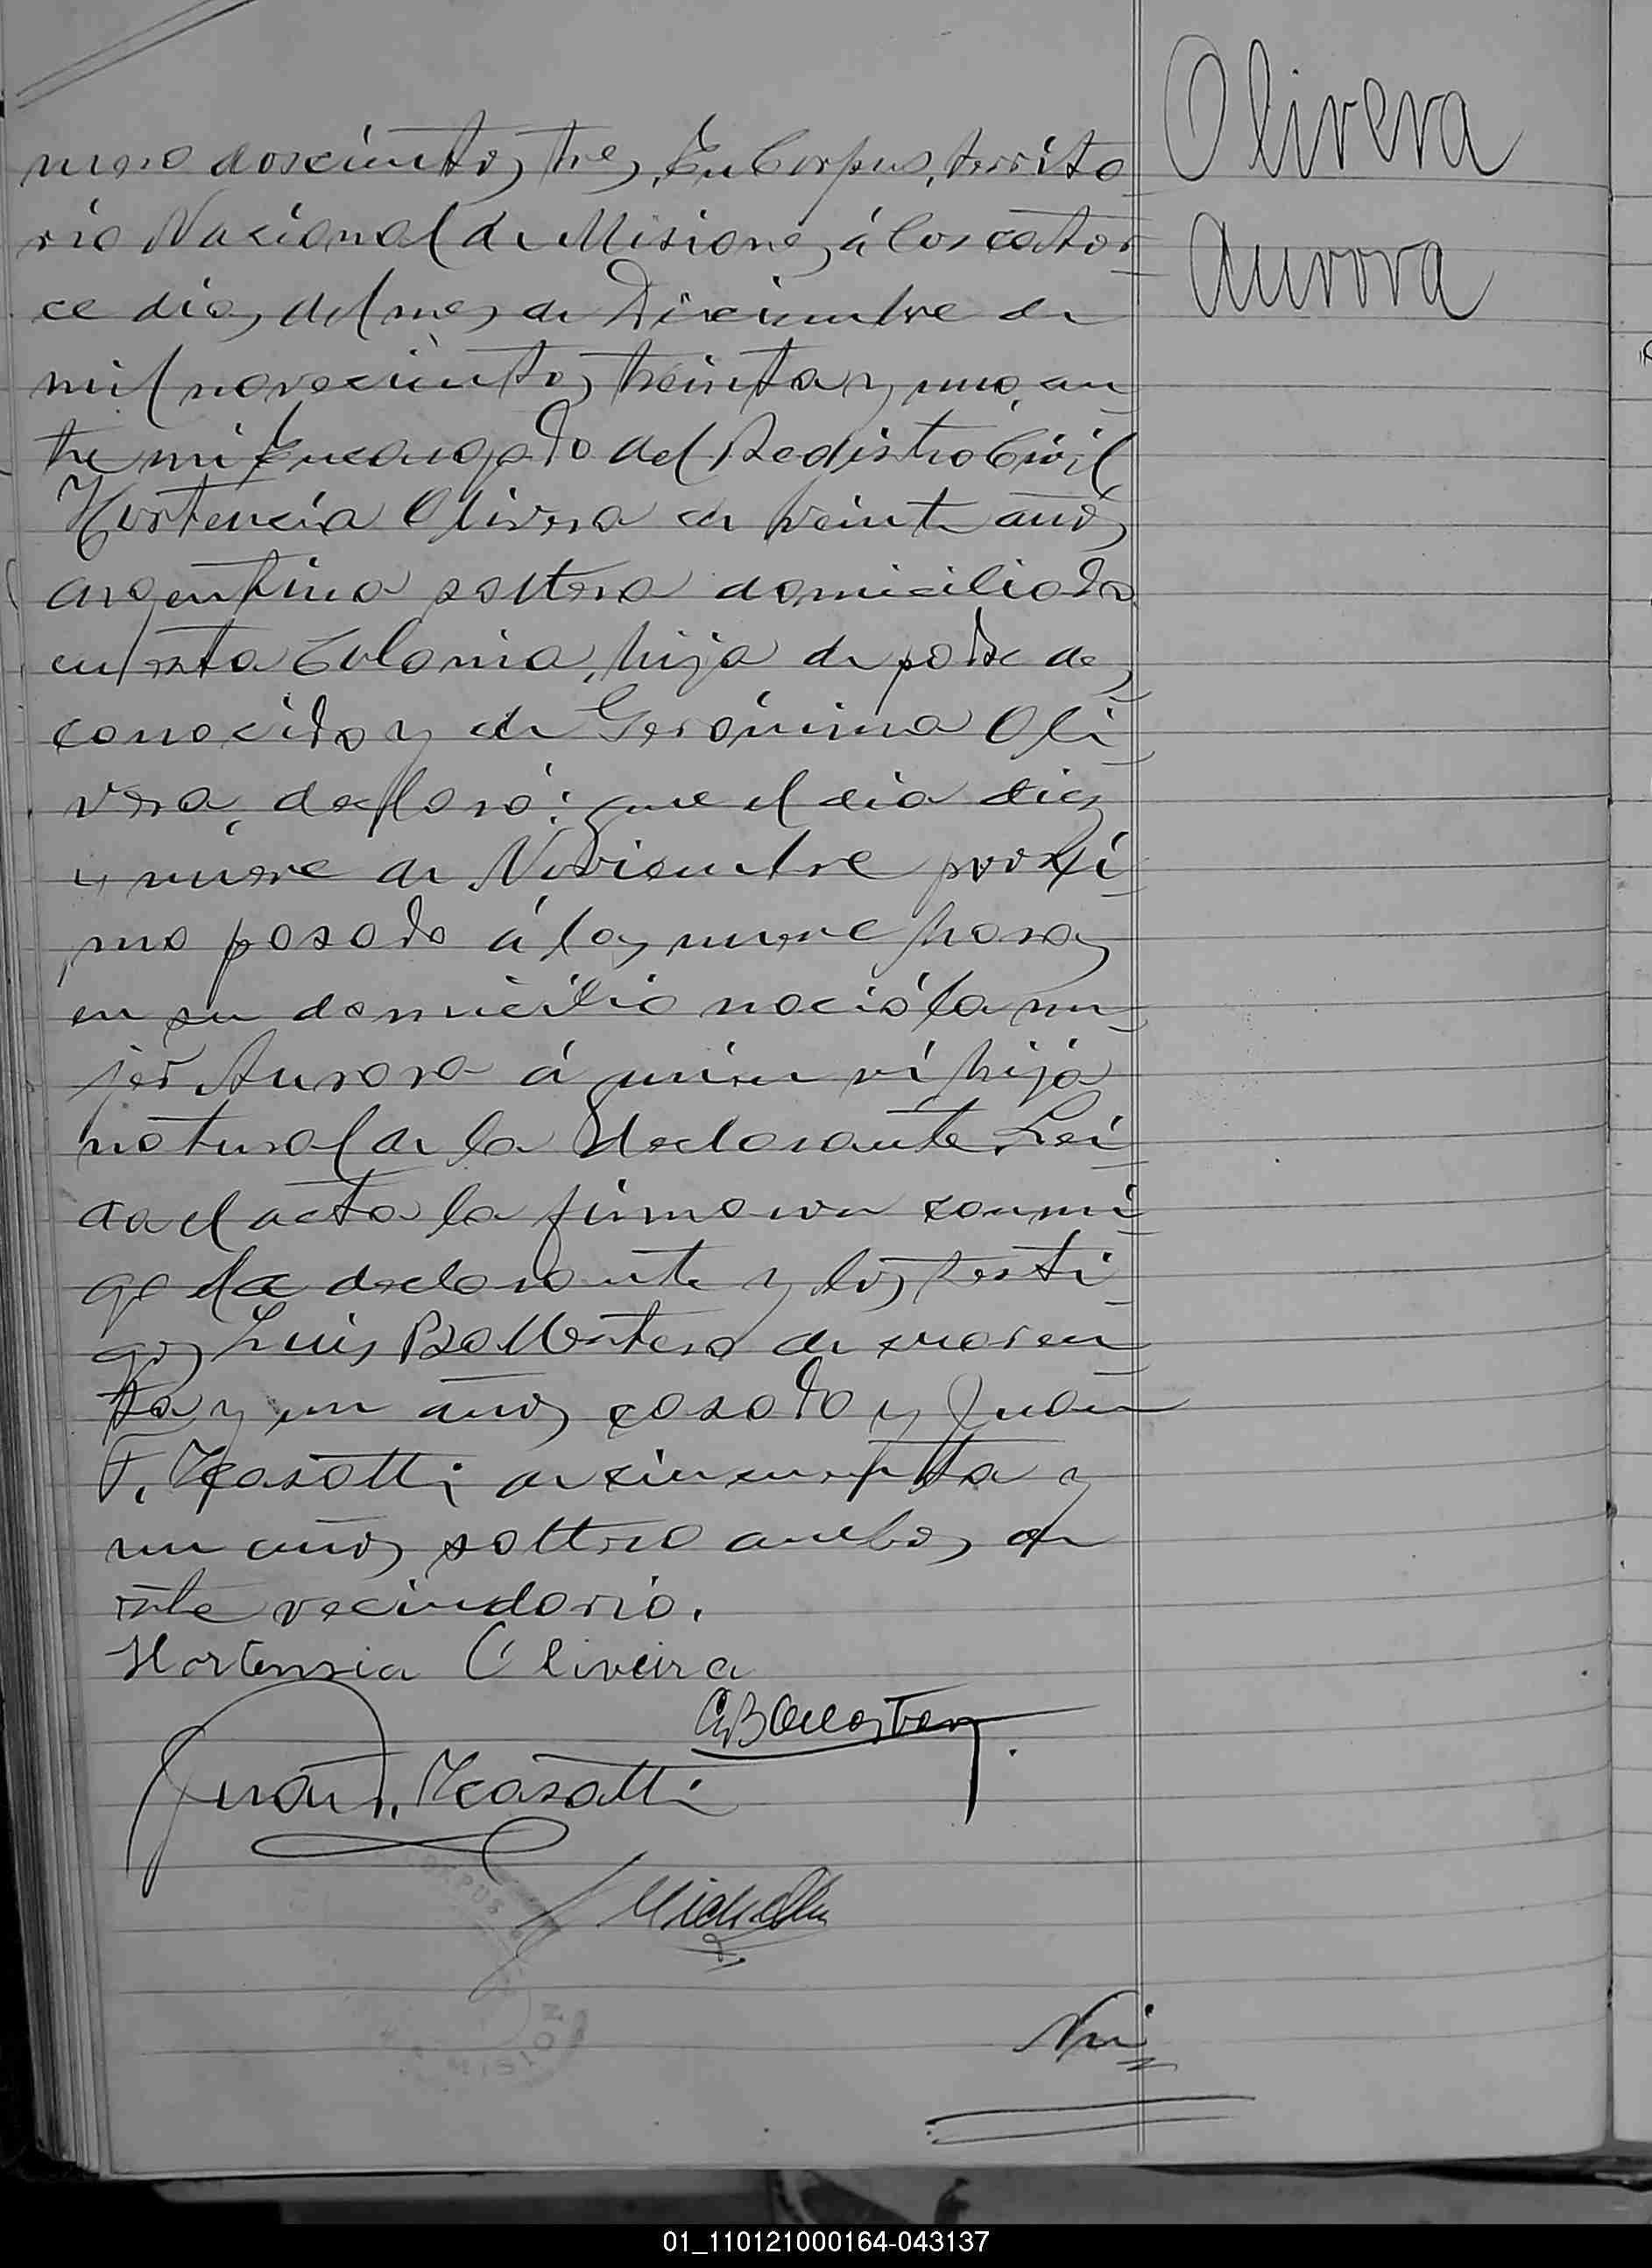 Olivera
Aurora
mero doscientos tres, En Corpus, territo
rio Nacional de Misiones, á los cator
ce dias del mes de Diciembre de
mil novecientos treinta y uno, an
te mi Encargado del Registro Civil
Hortencia Olivera de veinte años
argentina soltera domiciliada
en esta Colonia, hija de padre des
conocido y de Gerónima Oli
vera, declaró: que el dia diez
y nueve de Noviembre proxi
mo pasado á las nueve horas
en su domicilio nació la mu
jer Aurora á quien ví hija
natural de la declarante. Lei
da el acta la firmaron conmi
go la declarante y los testi
gos Luis de cuaren
ta y un años casado y Juan
F. Masotti de cincuenta y
un años soltero ambos de
este vecindario.
Hortensia Oliveira
Juan F. Masotti
CORPUS
MISION
Nú
01_110121000164-043137